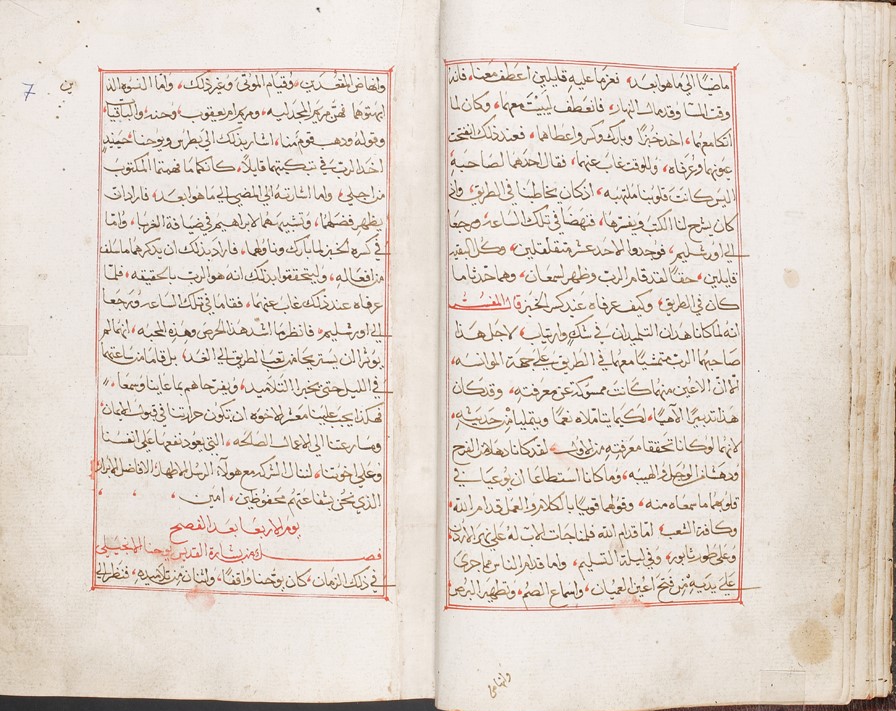 ماضيًا الي ما هو ابعد، فعزما عليه قايلين اعطف معنا، فانه
وقت المسا وقد مال النهار، فانعطف ليبيت معهما، وكان لما
اتكا معهما، اخذ خبزًا وبارك وكسر واعطاهما، فعند ذلك انفتحت
عيونهما وعرفاه، وللوقت غاب عنهما، فقال احدهما لصاحبه
اليس كانت قلوبنا ملتهبه، اذ كان يخاطبنا في الطريق، واذ
كان يشرح لنا الكتب ويفسرها، فنهضا في تلك الساعه ورجعا
الي اورشليم، فوجدوا الاحد عشر متقفلين، وكل البقيه
قايلين، حقًا لقد قام الرب وظهر لسمعان، وهما حدثا بما
كان في الطريق، وكيف عرفاه عند كسر الخبز قال المفسر
انه لما كانا هذان التلميذان في شك وارتياب، لاجل هذا
صاحبهما الرب متمشيًا معهما في الطريق علي جهة الموانسه،
الا ان الاعين منهما كانت ممسوكه عن معرفته، وقد كان
هذا تدبيرًا الاهيًا، لكيما يتاملاه نعمًا ويتمليا من حديثه،
لانهما لو كانا تحققا معرفته من الاول، لقد كانا دهلا من الفرح
ودهشا من الوجل والهيبه، وما كانا استطاعا ان يوعيا في
قلوبهما ما سمعاه منه، وقولهما قويًا بالكلام والعمل قدام الله
وكافة الشعب، اما قدام الله فلمناجات الاب له علي نهر الاردن
وعلي طور تابور، وفي ليلة التسليم، واما قدام الناس مما جري
علي يديه من فتح اعين العميان، واسماع الصم، وتطهير البرص
وانهاض
7
وانهاض المقعدين، وقيام الموتي وغير ذلك، واما النسوه الذ
ابهتوهما فهن مريم المجدليه، ومريم ام يعقوب وحنه والباقيا
وقوله ومضي قوم منا، اشار بذلك الي بطرس ويوحنا حينيذٍ
اخذ الرب في تبكيتهما قايلًا، كانكما ما فهمتما المكتوب
من اجلي، واما اشارته الي المضي الي ما هو ابعد، فاراد ان
يظهر فضلهما، وتشبيههما لابراهيم في ضيافة الغربا، واما
في كسره الخبز لما بارك وناولهما، فاراد بذلك ان يذكرهما ما سلف
من افعاله، وليتحققوا بذلك انه هو الرب بالحقيقه، فلما
عرفاه عند ذلك غاب عنهما، فقاما في تلك الساعه ورجعا
الي اورشليم، فانظر ما اشد هذا الحرص وهذه المحبه، انهما لم
يوثرا ان يستريحا من تعب الطريق الي الغد، بل قاما من ساعتهما
في الليل حتي يخبرا التلاميذ، ويفرحاهم بما عاينا وسمعا،
فهكذا يجب علينا معشر الاخوه ان تكون حرارتنا في قبول الايمان
ومسارعتنا الي الاعمال الصالحه، التي يعود نفعها علي انفسنا
وعلي اخوتنا، لننال الشركه مع هولاء الرسل الاطهار الافاضل الابرار
الذي نحن بشفاعتهم محفوظين، امين
يوم الاربعا بعد الفصح
فصل من بشارة القديس يوحنا الانجيلي
في ذلك الزمان، كان يوحنا واقفًا، واثنان من تلاميذه، فنظر الي